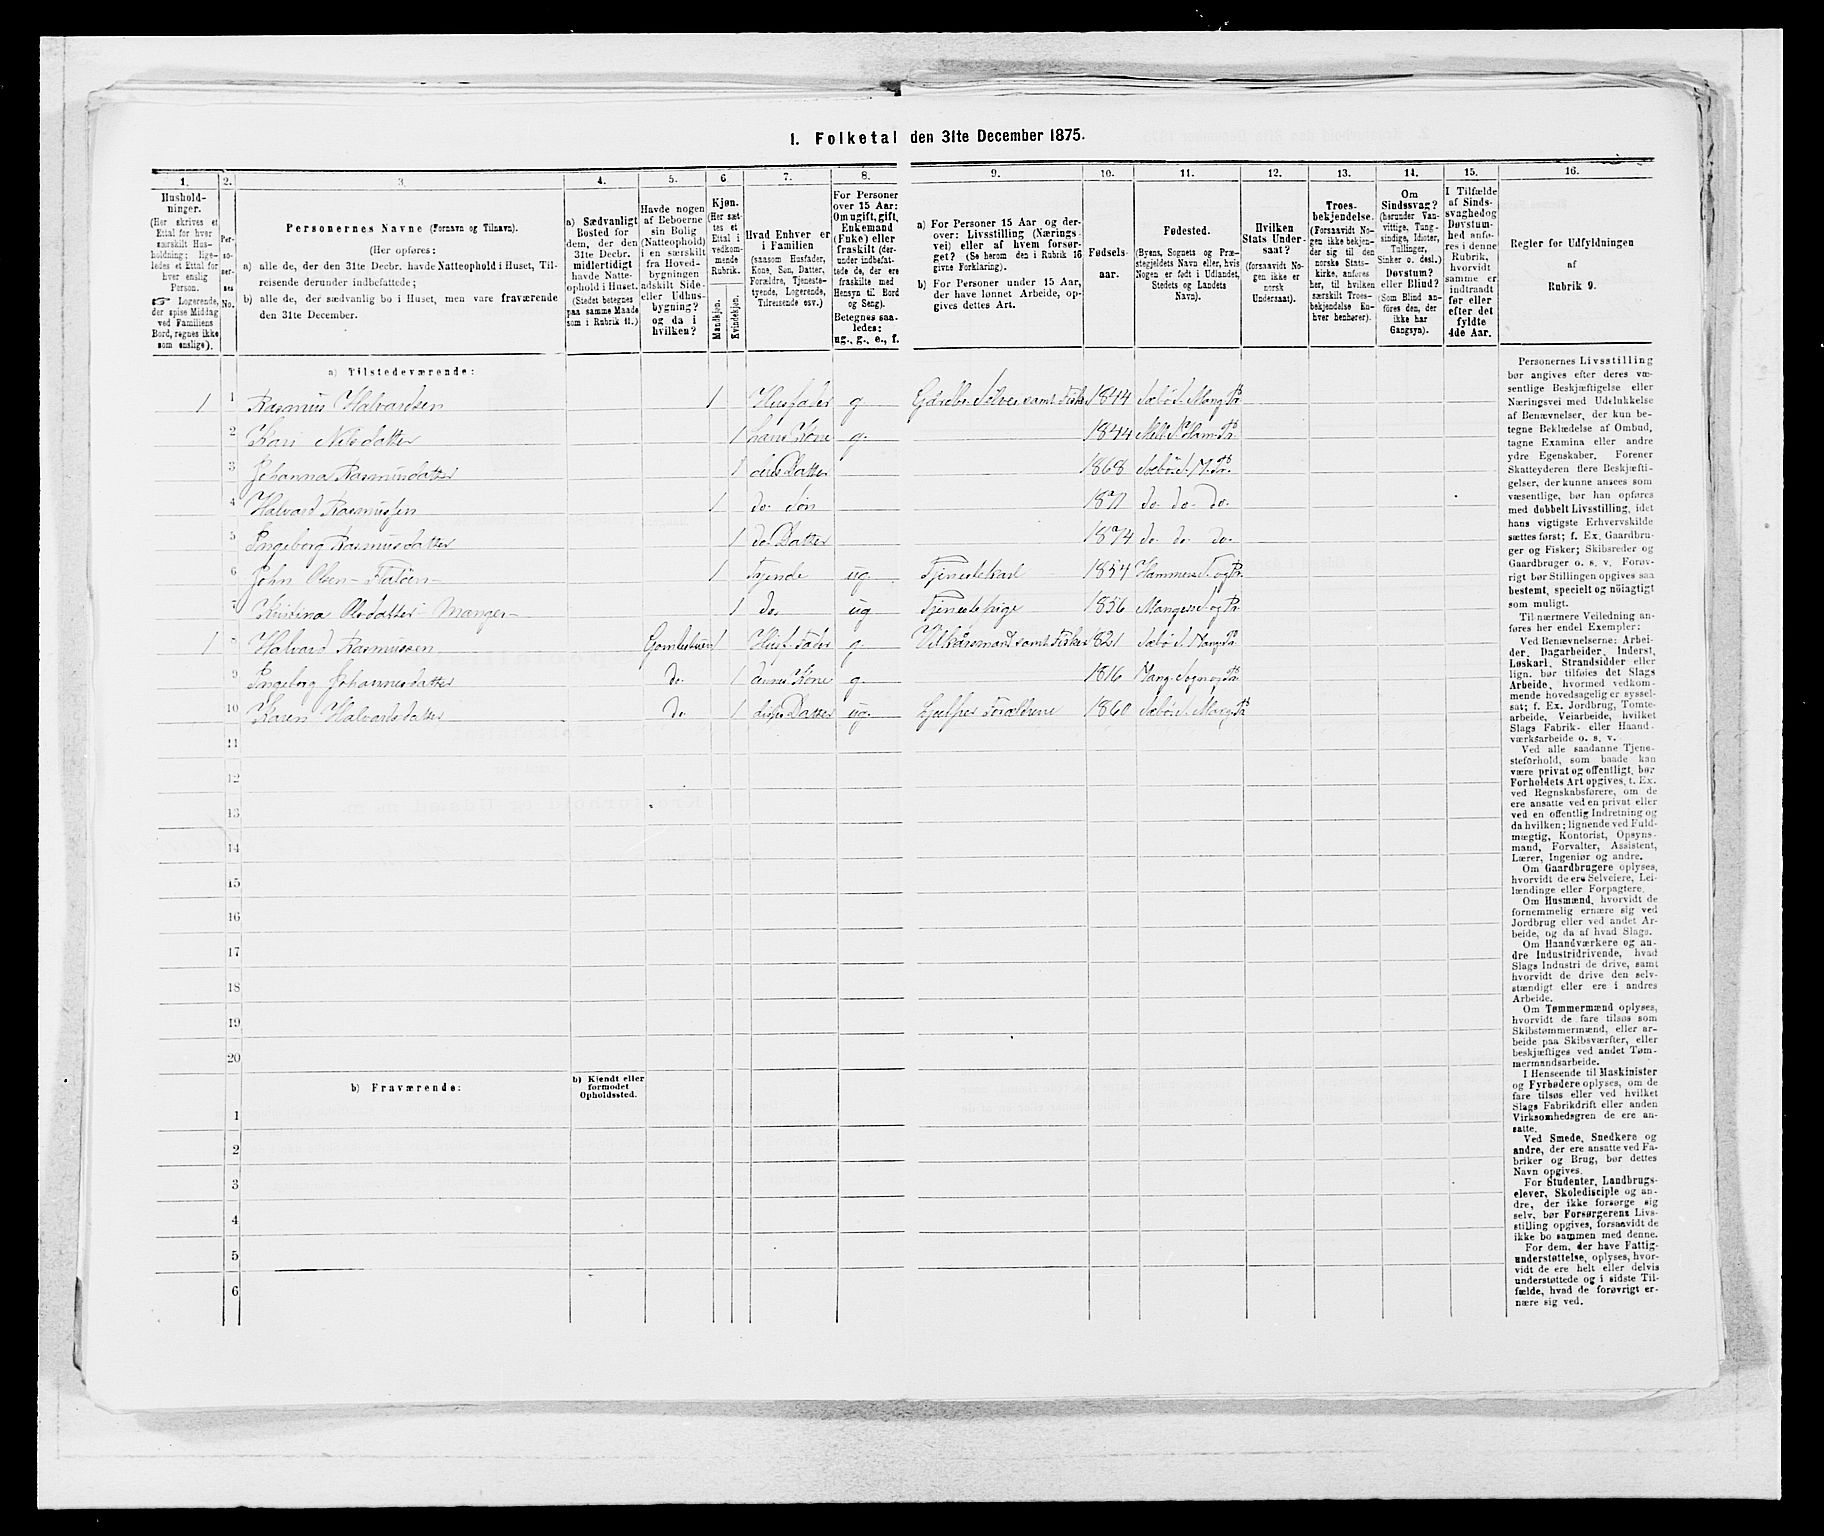 1. Folketal den 31te December 1875.
1. 2. 3. 4. 5. 6. 7. 8. 9. 10. 11. 12. 13. 14. 15. 16.
Husholdninger.
(Her skrives et
Ettal for hver
særskilt Husholdning;
ligeledes et Ettal for
hver enslig
Person.
☞ Logerende,
der spise Middag
ved Familiens
Bord, regnes ikke
som enslige).
Personernes No.
Personernes Navne (Fornavn og Tilnavn).
(Her opføres:
a) alle de, der den 31te Decbr. havde Natteophold i Huset, Tilreisende derunder indbefattede;
b) alle de, der sædvanlig bo i Huset, men vare fraværende
den 31te December.
a) Sædvanligt
Bosted for
dem, der den
31te Decbr.
midlertidigt
havde Natteophold i Huset.
(Stedet betegnes
paa samme Maade
som i Rubrik 11.)
Havde nogen
af Beboerne
sin Bolig
(Natteophold)
i en særskilt
fra Hovedbygningen
adskilt Side- eller Udhusbygning?
og da i
hvilken?
Kjøn.
(Her sættes et
Ettal i
vedkommende
Rubrik.
Mandkjøn.
Kvindekjøn.
Hvad Enhver er
i Familien
(saasom Husfader,
Kone, Søn, Datter,
Forældre, Tjenestetyende, Logerende,
Tilreisende osv.)
For Personer
over 15 Aar:
Om ugift, gift,
Enkemand
(Enke) eller
fraskilt (derunder indbefattede de, der ere
fraskilte med
Hensyn til Bord
og Seng).
Betegnes saaledes:
ug., g., e., f.
a) For Personer 15 Aar og derover: Livsstilling (Næringsvei) eller af hvem forsørget? (Se herom den i Rubrik 16
givne Forklaring).
b) For Personer under 15 Aar,
der have lønnet Arbeide, opgives dettes Art.
Fødselsaar.
Fødested.
(Byens, Sognets og Præstegjeldets Navn eller, hvis
Nogen er født i Udlandet,
Stedets og Landets
Navn).
Hvilken
Stats Undersaat?
(forsaavidt Nogen ikke er
norsk
Undersaat).
Troesbekjendelse.
(Forsaavidt Nogen ikke bekjender sig til den
norske Statskirke, anføres
her, til hvilken
særskilt Troesbekjendelse Enhver henhører).
Om
Sindssvag?
(herunder Vanvittige, Tungsindige, Idioter,
Tullinger,
Sinker o. desl.)
Døvstum?
eller Blind?
(Som Blind anføres den, der
ikke har
Gangsyn).
I Tilfælde
af Sindssvaghed og
Døvstumhed anføres i denne
Rubrik,
hvorvidt
samme er
indtraadt
før eller
efter det
fyldte
4de Aar.
Regler for Udfyldningen
af
Rubrik 9.
a) Tilstedeværende:
1 1 Rasmus Halvardsen 1 Husfader g Gaardbr. Selveier samt Fisker 1844 Sæbø S. Mang. Pr
2 Kari Nilsdatter 1 hans Kone g. 1844
3 Johanna Rasmusdatter 1 deres Datter 1868 Sæbø S. M. Pr.
4 Halvard Rasmussen 1 do. Søn 1871 do. do. do.
5 Ingeborg Rasmusdatter 1 do. Datter 1874 do. do. do.
6 John Olsen Fladøen 1 Tyende ug. Tjenestekarl 1854 Hammers S. og Pr.
7 Kristina Olsdatter Manger 1 do. ug Tjenestepige 1856 Mangers S. og Pr
1 8 Halvard Rasmussen 1 Husfader g Vilkårsmand samt Fisker 1821 Sæbø S. Mang. Pr
9 Ingeborg Johannesdatter do. 1 dennes Kone g. 1816 Mang. Sogn og Pr.
10 Karen Halvardsdatter do 1 disses Datter ug. hjelper Forældrene 1860 Sæbø S. Mang. Pr
11
12
13
14
15
16
17
18
19
20
b) Fraværende:
b) Kjendt eller
formodet
Opholdssted.
1
2
3
4
5
6
Personernes Livsstilling
bør angives efter deres væsentlige Beskjæftigelse eller
Næringsvei med Udelukkelse
af Benævnelser, der kun betegne Beklædelse af Ombud,
tagne Examina eller andre
ydre Egenskaber. Forener
Skatteyderen flere Beskjæftigelser, der kunne ansees som
væsentlige, bør han opføres
med dobbelt Livsstilling, idet
hans vigtigste Erhvervskilde
sættes først; f. Ex. Gaardbruger og Fisker; Skibsreder og
Gaardbruger o. s. v. Forøvrigt bør Stillingen opgives saa
bestemt, specielt og nöiagtigt
som muligt.
Til nærmere Veiledning anføres her endel Exempler:
Ved Benævnelserne: Arbeider, Dagarbeider, Inderst,
Løskarl, Strandsidder eller
lign. bør tilføies det Slags
Arbeide, hvormed vedkommende hovedsagelig er sysselsat; f. Ex. Jordbrug, Tomtearbeide, Veiarbeide, hvilket
Slags Fabrik- eller Haandværksarbeide o. s. v.
Ved alle saadanne Tjenesteforhold, som baade kan
være privat og offentligt, bør
Forholdets Art opgives, t. Ex.
ved Regnskabsførere, om de
ere ansatte ved en privat eller
ved en offentlig Indretning og
da hvilken; lignende ved Fuldmægtig, Kontorist, Opsynsmand, Forvalter, Assistent,
Lærer, Ingeniør og andre.
Om Gaardbrugere oplyses,
hvorvidt de ere Selveiere, Leilændinge eller Forpagtere.
Om Husmænd, hvorvidt de
fornemmelig ernære sig ved
Jordbrug eller ved andet Arbeide, og da af hvad Slags.
Om Haandværkere og andre Industridrivende, hvad
Slags Industri de drive, samt
hvorvidt de drive den selvstændigt eller ere i andres
Arbeide.
Om Tømmermænd oplyses,
hvorvidt de fare tilsøs som
Skibstømmermænd, eller arbeide paa Skibsværfter, eller
beskjæftiges ved andet Tømmermandsarbeide.
I Henseende til Maskinister
og Fyrbødere oplyses, om de
fare tilsøs eller ved hvilket
Slags Fabrikdrift eller anden
Virksomhedsgren de ere ansatte.
Ved Smede, Snedkere og
andre, der ere ansatte ved Fabriker og Brug, bør dettes
Navn opgives.
For Studenter, Landbrugselever, Skoledisciple og andre, der ikke forsørge sig
selv, bør Forsørgerens Livsstilling opgives, forsaavidt de
ikke bo sammen med denne.
For dem, der have Fattigunderstøttelse, oplyses, hvorvidt de ere helt eller delvis
understøttede og i sidste Tilfælde, hvad de forøvrigt ernære sig ved.